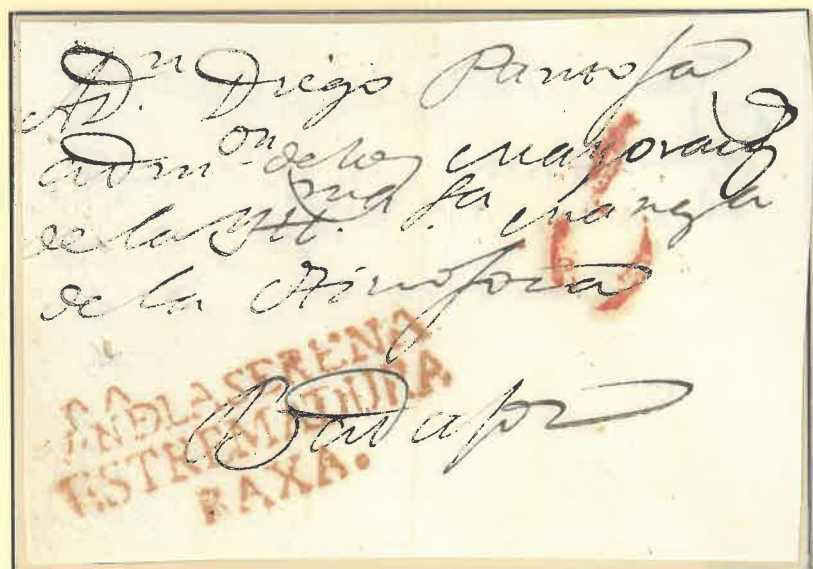 A Dn. Diego Pantoja
admon de los mayorazg
de la Illma Sa
de la Hinojosa
Badajoz
LASERENA
ESTREMADURA
BAXA.